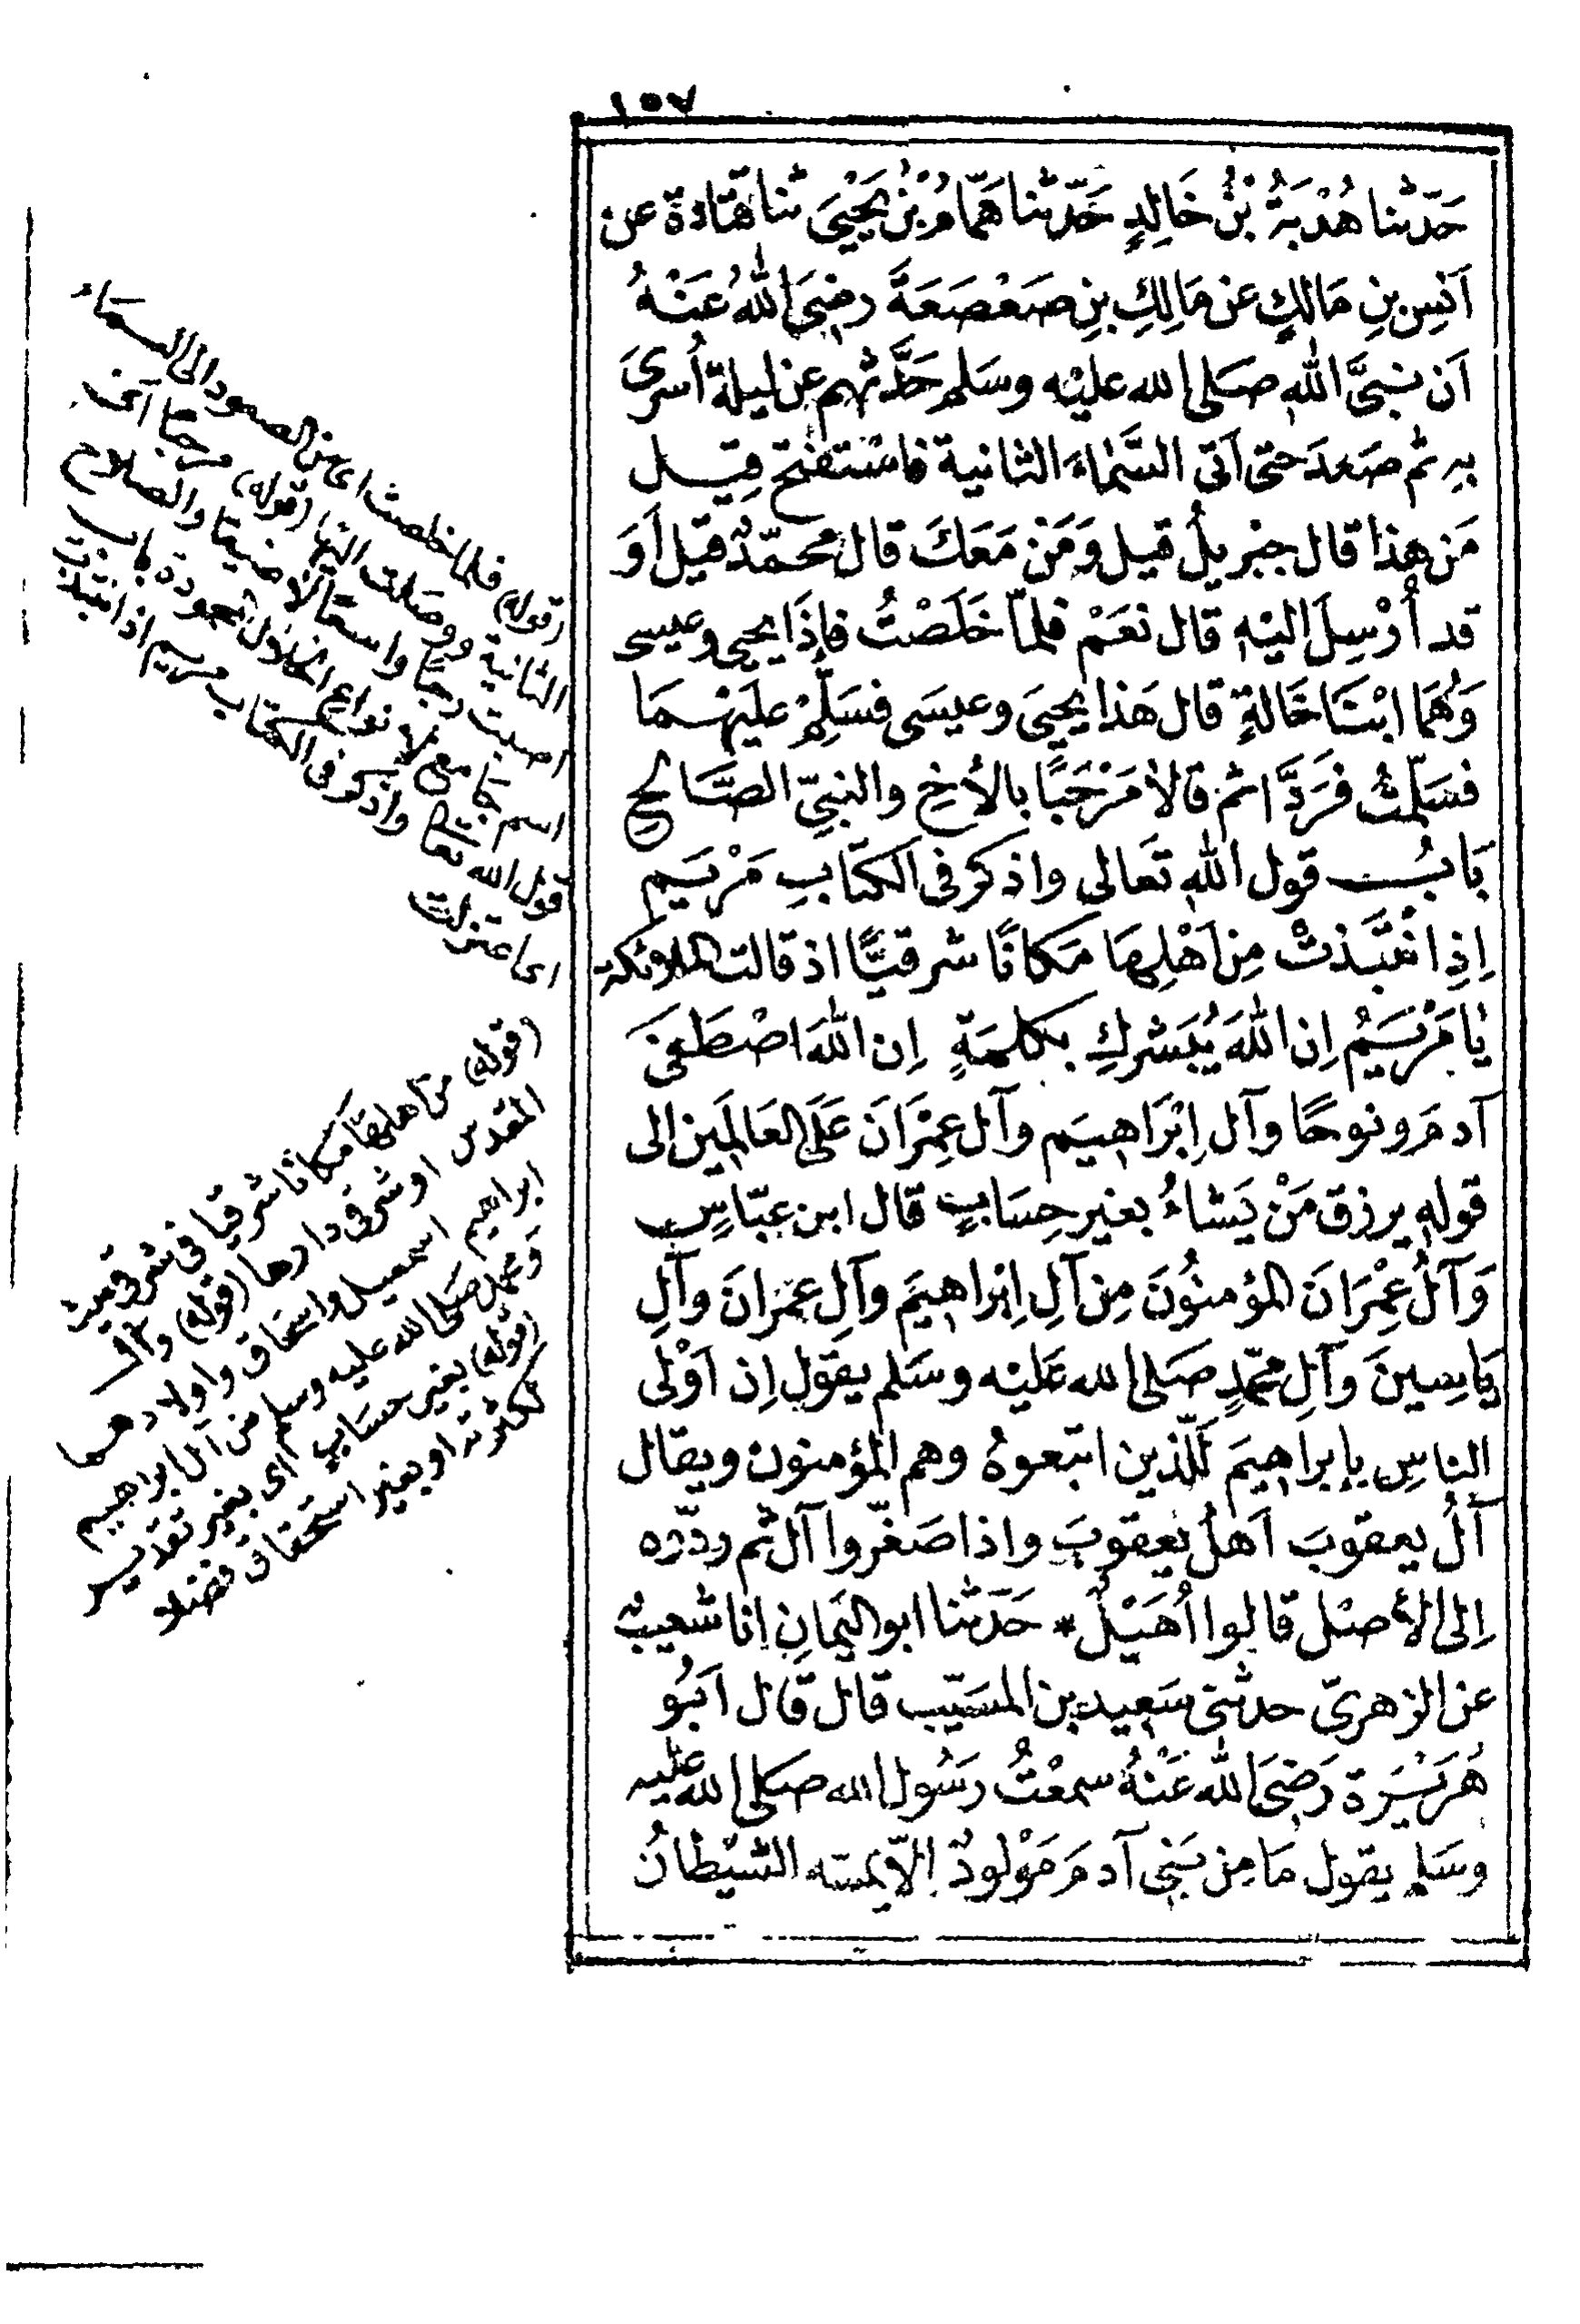 ١٥٧
حَدّثنا هُدْبَةُ بْنُ خَالِدٍ حَدّثنا هَمّامُ بْنُ يَحْيَى ثنا قتَادَة عن
اَنَسِ بنِ مَالكٍ عن مَالِكِ بنِ صَعْصَعَةَ رضِىَ اللهُ عَنْهُ
اَن نبىَّ اللهِ صَلى الله عليْه وسَلم حَدَّثهم عن ليلة اُسرىَ
بهِ ثم صَعدَ حتى اَتى السَّمَاءَ الثانية فاسْتفتح قِيل
مَن هذا قال جبريلُ قيل وَمَنْ مَعَكَ قال محمّدٌ قيل اَوَ
قد اُرْسِلَ اليْهِ قال نعَمْ فلمّا خَلَصْتُ فإذَا يحيى وعيسى
وَهُمَا ابْنَا خَالةٍ قال هَذا يحيىَ وعيسَى فسَلّمْ عليْهمَا
فسَلّمْتُ فرَدَّا ثم قالا مَرْحَبًا بالأخِ والنبىّ الصَّالح
بَابُ قول اللهِ تَعَالى واذكر فى الكتَابِ مَرْيَم
اِذِ انْتَبَذتْ مِن اَهْلِهَا مَكانًا شرقيًّا اذ قالت الملائكة
يٰا مَرْيَمُ اِن اللهَ يُبَشركِ بكلمَةٍ اِن اللهَ اصْطَفَى
آدمَ ونوحًا وآل اِبْرَاهيَم وآل عِمْرَانَ عَلَى العَالمَين الى
قولهِ يرزق مَنْ يَشاءُ بغيرِ حِسَابٍ قال ابن عبّاسٍ
وَآلُ عِمْرَانَ المؤمنُونَ مِن آلِ اِبْراهيَم وآلِ عمْرانَ وآلِ
يَاسِينَ وآلِ محمّدٍ صَلى الله عَليْه وسَلم يقول اِن اَوْلى
الناسِ بإبراهيَم لَلّذين اتبعوهُ وهم المؤمنون ويقال
آلُ يعقوبَ اَهلُ يعقوبَ واذا صَغّروا آل ثم ردّوه
اِلى الأصْل قالوا اُهَيْلٌ * حَدّثنا ابو اليَمانِ انا شعيبٌ
عن الزهرىّ حدثنى سَعيد بن المسَيّب قال قال اَبُو
هُرَيْرَة رَضِىَ الله عَنْهُ سمعْتُ رَسُول الله صَلى الله عليه
وسَلم يقول مَا مِن بَنِى آدمَ مَوْلودٌ الّا يمسّه الشيْطانُ
(قوله) فلما خلصت اى من الصعود الى السماء
الثانية ووصلت اليها (قوله) مرحبا اى
اصبت رحبًا واسعًا لا ضيقا والصلاح
اسم جامع لانواع
قول الله تعالى واذكر فى الكتاب مريم اذ انتبذت
اى اعتزلت
(قوله) من اهلها مكانا شرقيا فى شرقى بيت
المقدس او شرقى دارها (قوله) وآل
ابراهيم اسمعيل واسحاق واولادهما
ومحمد صلى الله عليه وسلم من آل ابراهيم
(قوله) بغير حساب اى بغير تقدير
لكثرته او بغير استحقاق تفضلا